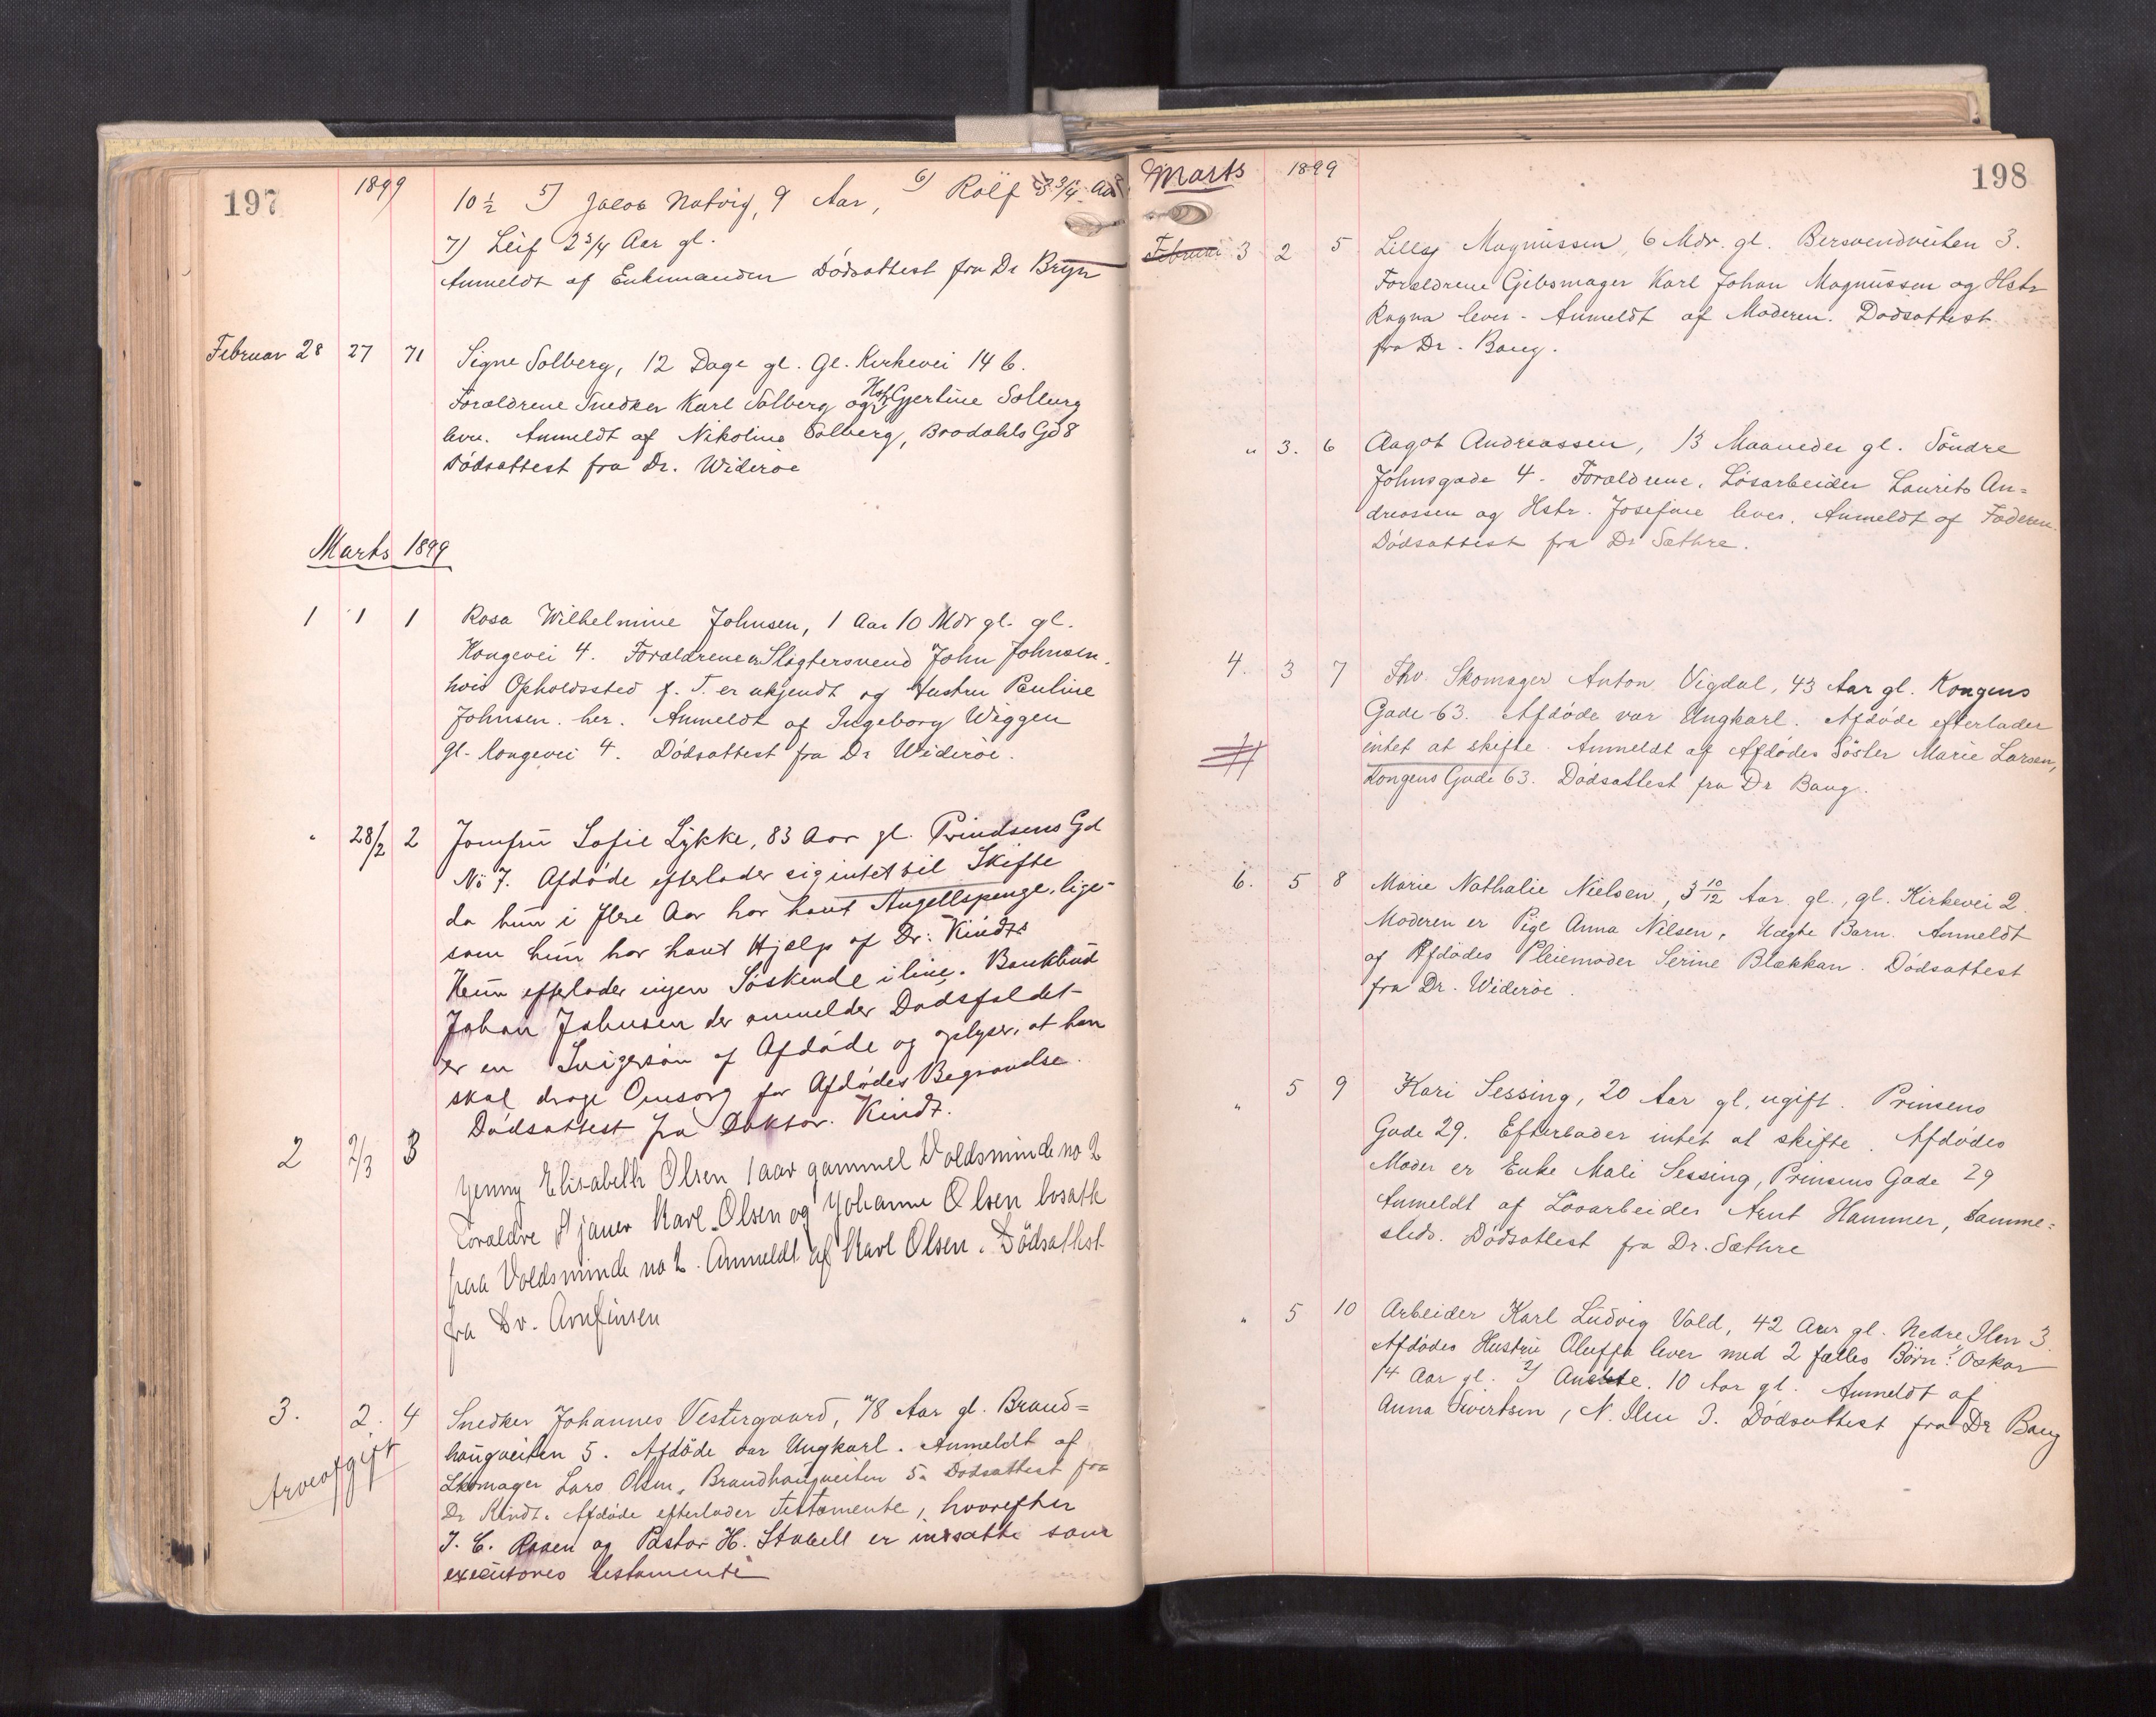 197
1899
10 ½ 5) Jacob Natvig, 9 Aar, 6) Rolf 3 3/4 Aar
7) Leif 2 3/4 Aar gl.
Anmeldt af Enkemanden Dödsattest fra Dr Bryn
Februar 28 27 71 Signe Solberg, 12 Dage gl. Gl. Kirkevei 14 b.
Forældrene Snedker Karl Solberg og Hstr Gjertine Solberg
lever. Anmeldt af Nikoline Solberg, Brodahls Gd 8
Dödsattest fra Dr. Wideröe
Marts 1899
1 1 1 Rosa Wilhelmine Johnsen, 1 Aar 10 Mdr gl. gl.
Kongevei 4. Forældrene er Slagtersvend John Johnsen,
hvis Opholdssted f. T. er ukjendt og Hustru Pauline
Johnsen. her. Anmeldt af Ingeborg Wiggen
gl. Kongevei 4. Dödsattest fra Dr Wideröe.
" 28/2 2 Jomfru Sofie Lykke, 83 Aar gl. Prindsens Gd
No 7. Afdöde efterlader sig intet til Skifte
da hun i flere Aar har havt Angellspenge, lige-
som hun har havt Hjelp af Dr: Kindts
Hun efterlader ingen Söskende i live. Bankbud
Johan Johnsen der anmelder Dödsfaldet
er en Svigersön af Afdöde og oplyser, at han
skal drage Omsorg for Afdödes Begravelse.
Dödsattest fra Doktor. Kindt.
2 2/3 3 Jenny Elisabeth Olsen 1 aar gammel Voldsminde no 2
Forældre Stjauer Karl Olsen og Johanne Olsen bosatte
paa Voldsminde no 2. Anmeldt af Karl Olsen. Dödsattest
fra Dr. Arnfinsen
3. 2. 4 Snedker Johannes Vestergaard, 78 Aar gl. Brand=
haugveiten 5. Afdöde var Ungkarl. Anmeldt af
Arveafgift
Skomager Lars Olsen, Brandhaugveiten 5. Dödsattest fra
Dr Kindt. Afdöde efterlader Testamente, hvorefter
J. C. Rosen og Pastor H. Stabell er indsatte som
executores testamenti
198
Marts 1899
Februar 3 2 5 Lilly Magnussen, 6 Mdr. gl. Bersvendveiten 3.
Forældrene Gibsmager Karl Johan Magnussen og Hstr
Ragna lever - Anmeldt af Moderen. Dödsattest
fra Dr. Bang.
" 3. 6 Aagot Andreassen, 13 Maaneder gl. Söndre
Johnsgade 4. Forældrene, Lösarbeider Laurits An=
dreassen og Hstr. Josefine lever. Anmeldt af Faderen.
Dödsattest fra Dr Sæthre.
4. 3 7 Fhv. Skomager Anton Vigdal, 43 Aar gl. Kongens
Gade 63. Afdöde var Ungkarl. Afdöde efterlader
intet at skifte. Anmeldt af Afdödes Söster Marie Larsen,
Kongens Gade 63. Dödsattest fra Dr Bang.
6. 5 8 Marie Nathalie Nielsen, 3 10/12 Aar gl., gl. Kirkevei 2.
Moderen er Pige Anna Nilsen, Uægte Barn. Anmeldt
af Afdödes Pleiemoder Serine Blækkan. Dödsattest
fra Dr. Wideröe.
" 5 9 Kari Sessing, 20 Aar gl, ugift. Prinsens
Gade 29. Efterlader intet at skifte. Afdödes
Moder er Enke Mali Sessing, Prinsens Gade 29
Anmeldt af Lösarbeider Arnt Hammer, samme=
steds. Dödsattest fra Dr. Sæthre
" 5 10 Arbeider Karl Ludvig Vold, 42 Aar gl. Nedre Ilen 3.
Afdödes Hustru Oluffa lever med 2 fælles Börn: 1) Oskar
14 Aar gl. 2) Anette. 10 Aar gl. Anmeldt af
Anna Sivertsen, N. Ilen 3. Dödsattest fra Dr Bang